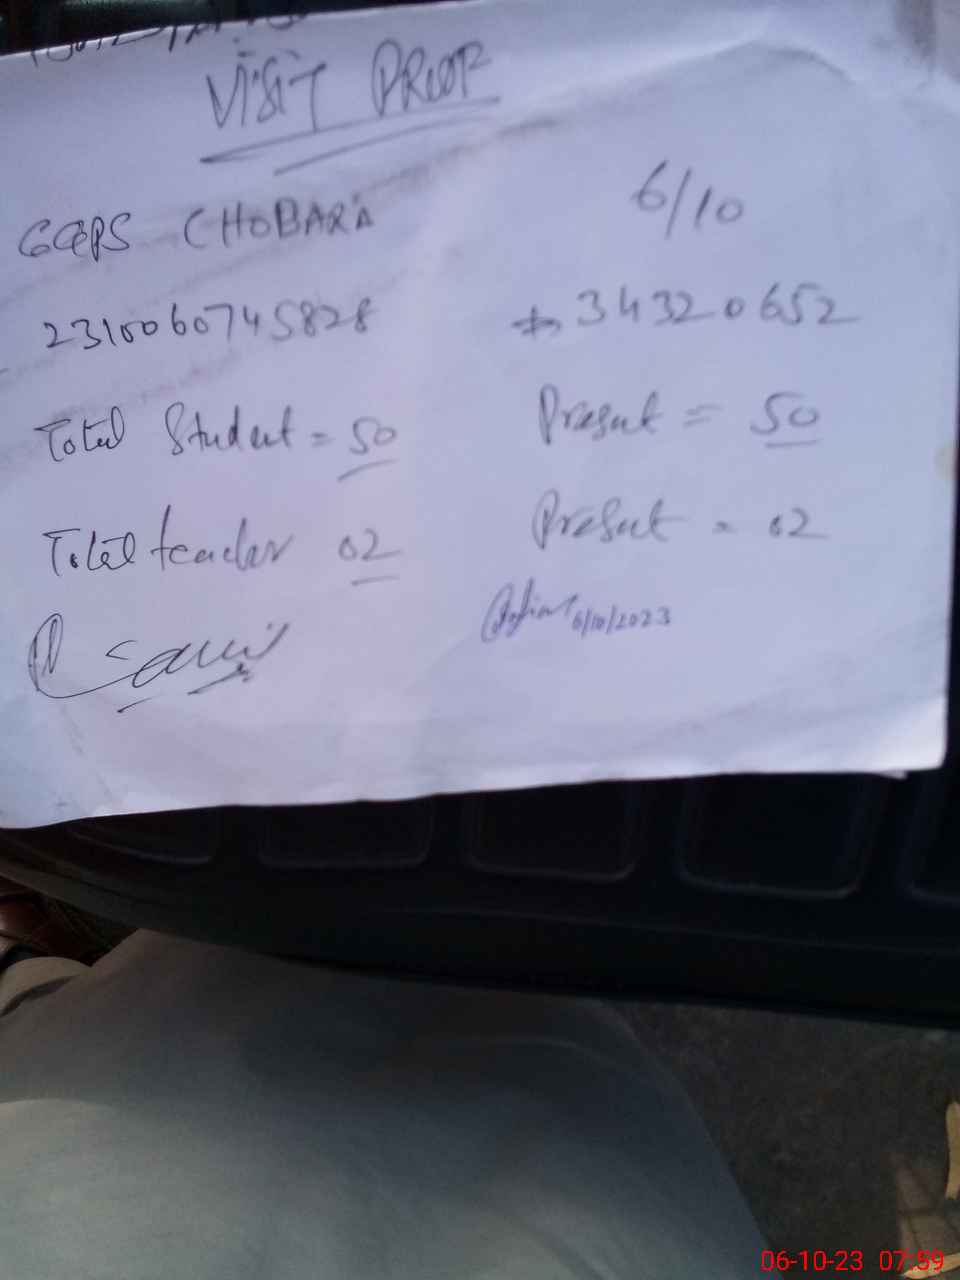 VISIT PROOF
GGPS CHOBARA 6/10
2310060745828 34320652
Total Student = 50 Present = 50
Total teacher 02 Present = 02
6/10/2023
06-10-23 07:59